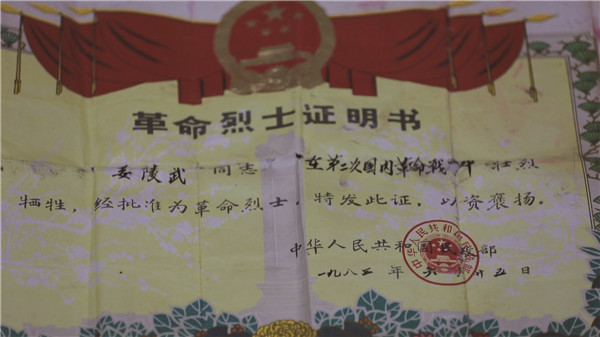 革命烈士证明书
陵武 同志 在第二次国内革命战 中 壮烈
牺牲，经批准为革命烈士，特发此证，以资褒扬。
中华人民共和国民政部
一九八三 年 六 月 廿五 日